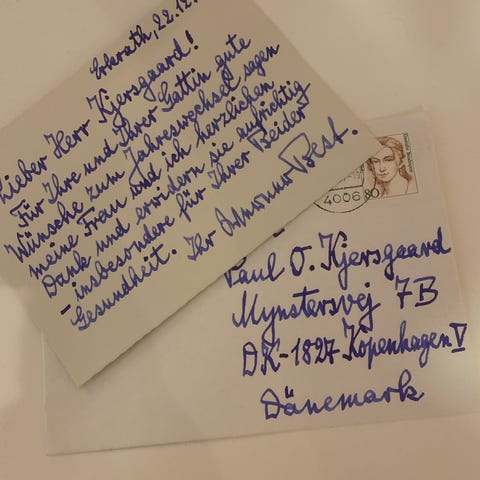 Erkrath, 22.12.
Lieber Herr Kjersgaard!
Für Ihre und Ihrer Gattin gute
Wünsche zum Jahreswechsel sagen
meine Frau und ich herzlichen
Dank und erwidern sie aufrichtig
- insbesondere für Ihrer Beider
Gesundheit. Ihr Best.
4006 80
Paul O. Kjersgaard
Mynstersvej 7B
DK-1827 Kopenhagen V
Dänemark